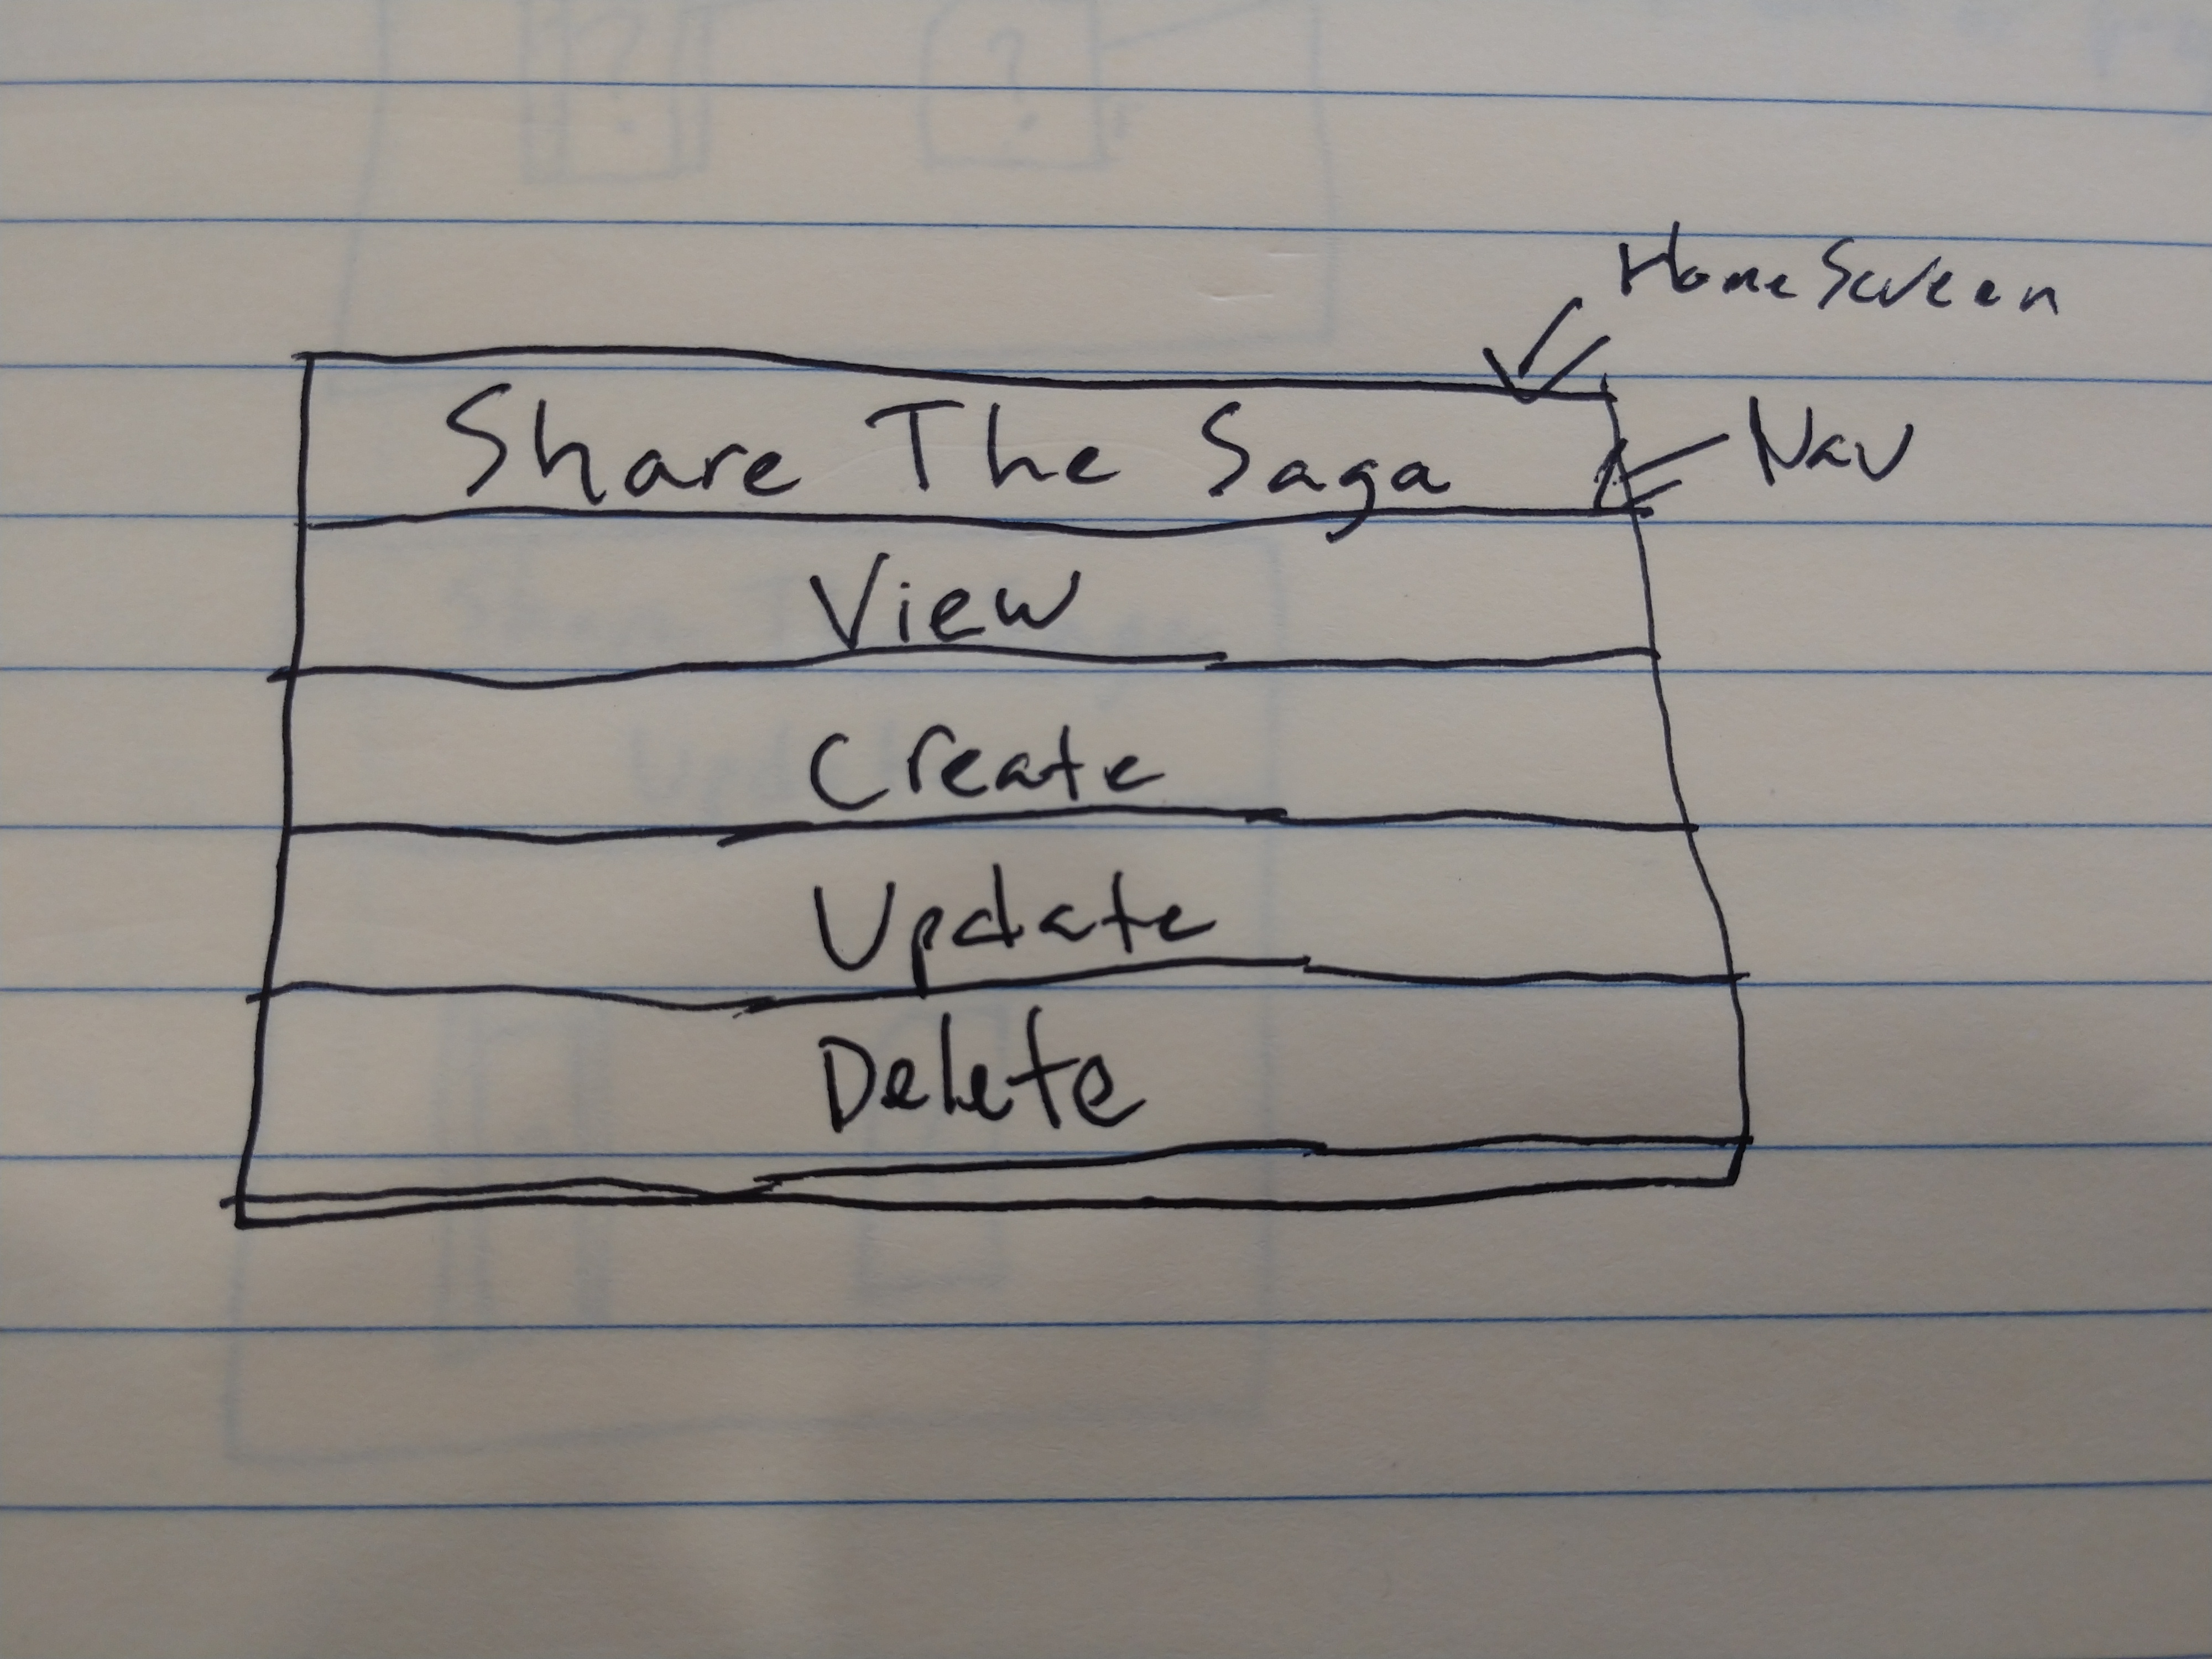 HomeScreen
Share The Saga
Nav
View
Create
Update
Delete